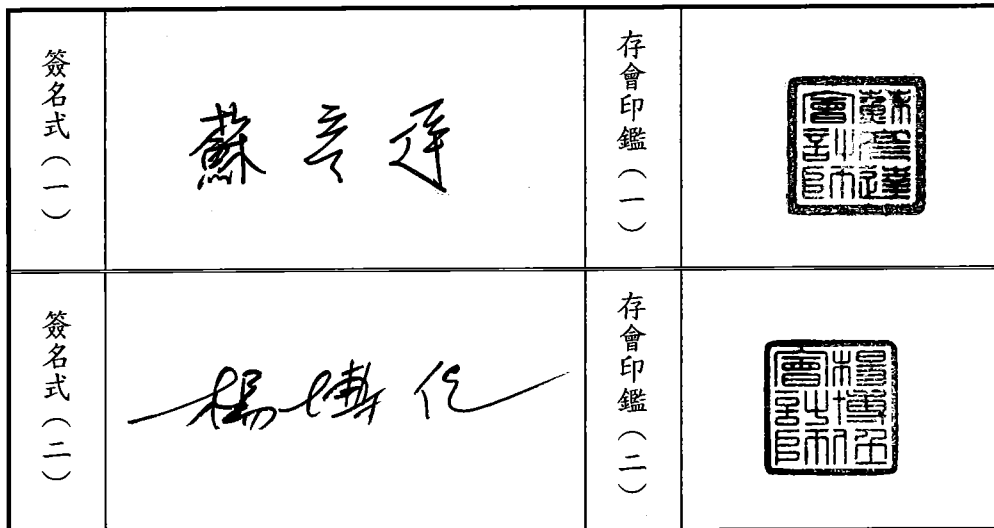 簽名式(一)
蘇彥達
存會印鑑(一)
蘇彥達會計師
簽名式(二)
楊博任
存會印鑑(二)
楊博任會計師